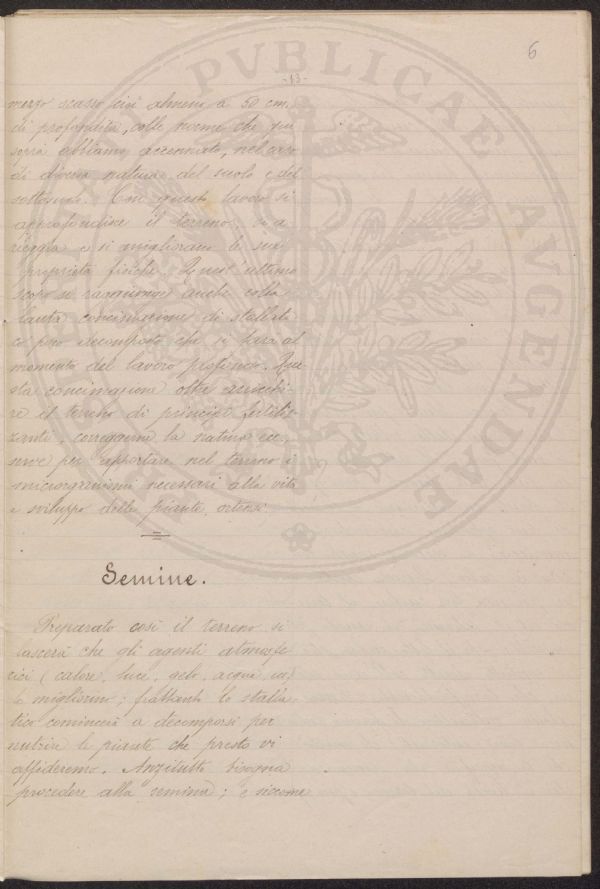 6
-13-
mezzo scasso cioè almeno a 50 cm.
di profondità, colle norme che più
sopra abbiamo accennato, nel caso
di diversa natura del suolo e del
sottosuolo. Con questo lavoro si
approfondisce il terreno, si a
rieggia e si migliorano le sue
proprietà fisiche. Quest'ultimo
scopo si raggiunge anche colla
lauta concimazione di stallati
co ben decomposto che si farà al
momento del lavoro profondo. Que
sta concimazione oltre arricchi-
re il terreno di principi fertiliz
zanti, correggerne la natura
serve per apportare nel terreno i
microrganismi necessari alla vita
e sviluppo delle piante ortensi.
Semine.
Preparato così il terreno si
lascerà che gli agenti atmosfe
rici (calore, luce, gelo, acqua
lo migliorino; frattanto lo stalla
tico comincerà a decomporsi per
nutrire le piante che presto vi
affideremo. Anzitutto bisogna
procedere alla semina; e siccome
PVBLICAE AVGENDAE